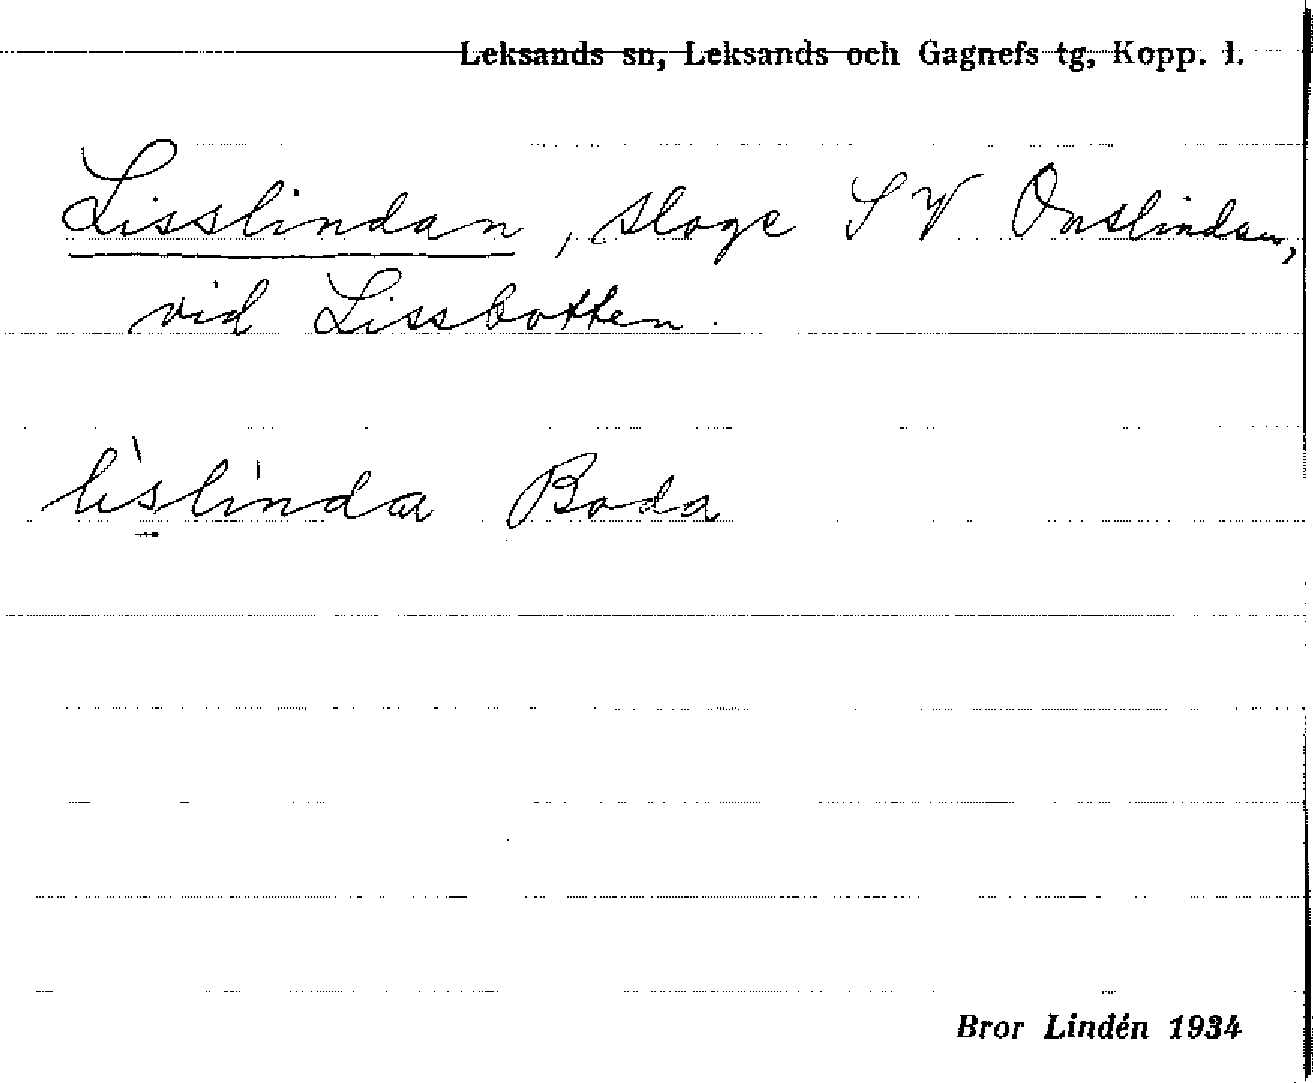 Leksands sn, Leksands och Gagnefs tg, Kopp. l.
Lisslindan, sloge S V Onslindan,
vid Lissbotten.
lìslinda Boda
Bror Lindén 1934